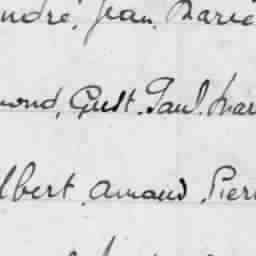 ndré, Jean, Marie
mond, Gust. Paul. Mar
lbert, Arnaud, Pierr